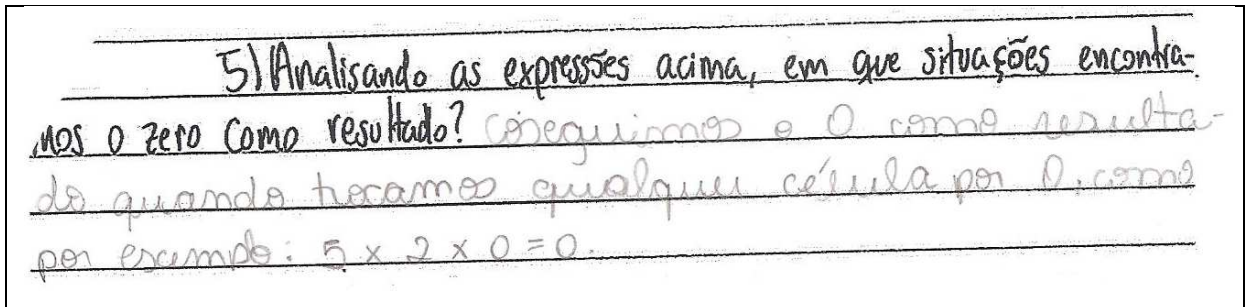 5) Analisando as expressões acima, em que situações encontra-
mos o zero como resultado? Coseguimos o 0 como resulta-
do quando trocamos qualquer célula por 0. como
por exemplo: 5 x 2 x 0 = 0.